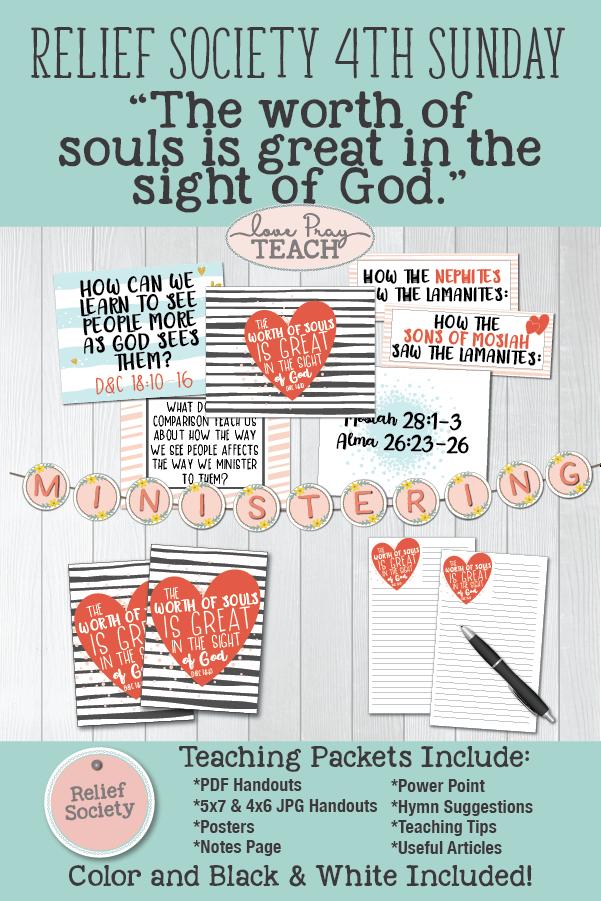 RELIEF SOCIETY 4TH SUNDAY
“The worth of
souls is great in the
sight of God.”
love Pray
TEACH
HOW CAN WE
LEARN TO SEE
PEOPLE MORE
AS GOD SEES
THEM?
D&C 18:10-16
THE
WORTH OF SOULS
IS GREAT
IN THE SIGHT
of God
D&C 18:10
HOW THE NEPHITES
W THE LAMANITES:
HOW THE
SONS OF MOSIAH
SAW THE LAMANITES:
WHAT DO
COMPARISON TEACH US
ABOUT HOW THE WAY
WE SEE PEOPLE AFFECTS
THE WAY WE MINISTER
TO THEM?
Mosiah 28:1-3
Alma 26:23-26
MINISTERING
THE
WORTH OF
IS GR
IN THE S
of G
D&C 18:1
THE
WORTH OF SOULS
IS GREAT
IN THE SIGHT
of God
D&C 18:10
THE
WORTH OF SOULS
IS GREAT
IN THE SIGHT
of God
THE
WORTH OF SOULS
IS GREAT
IN THE SIGHT
of God
Relief
Society
Teaching Packets Include:
*PDF Handouts
*5x7 & 4x6 JPG Handouts
*Posters
*Notes Page
*Power Point
*Hymn Suggestions
*Teaching Tips
*Useful Articles
Color and Black & White Included!